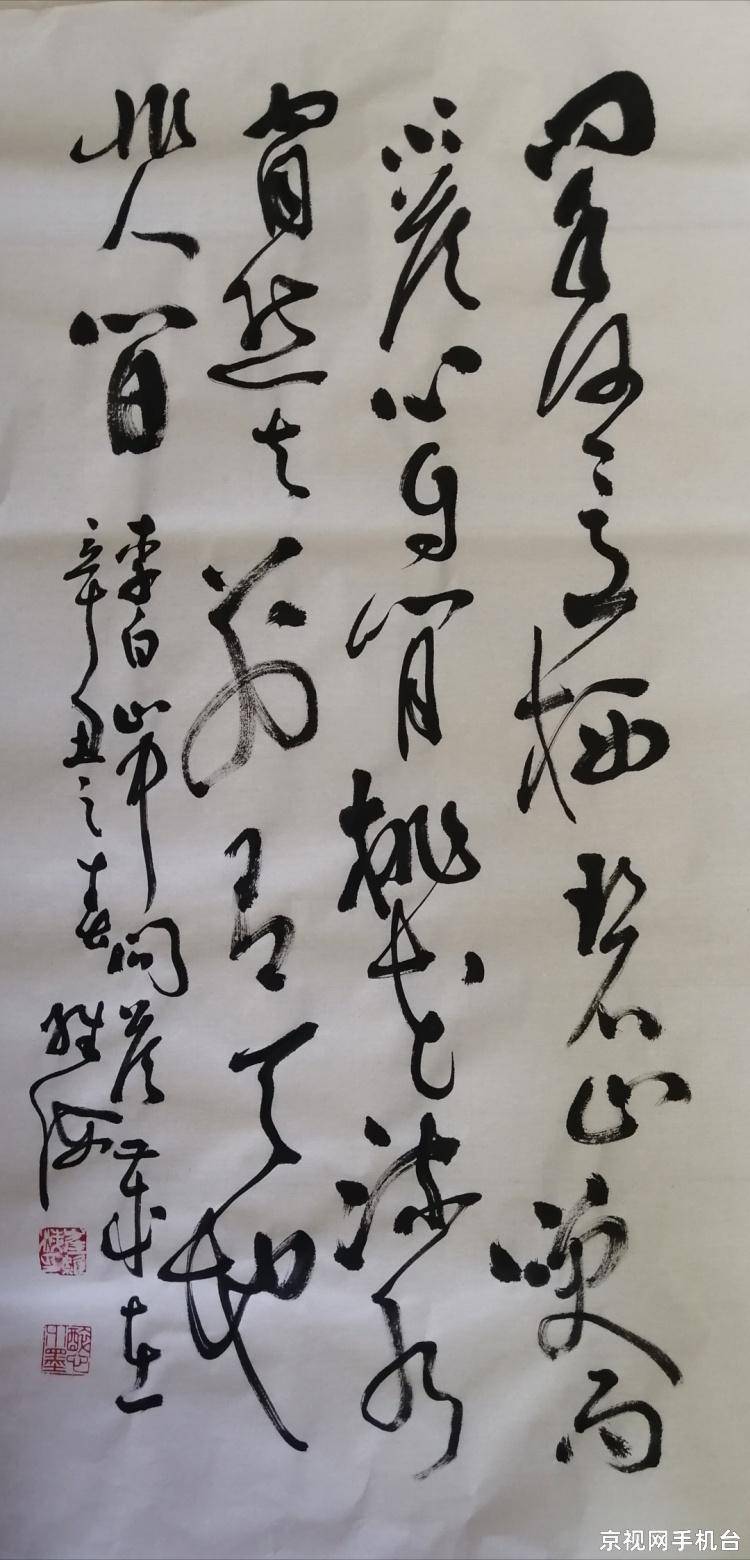 问余何意栖碧山笑而
不答心自閒桃花流水
窅然去别有天地
非人间
李白山中问答岁在
辛丑之春胜海
京视网手机台